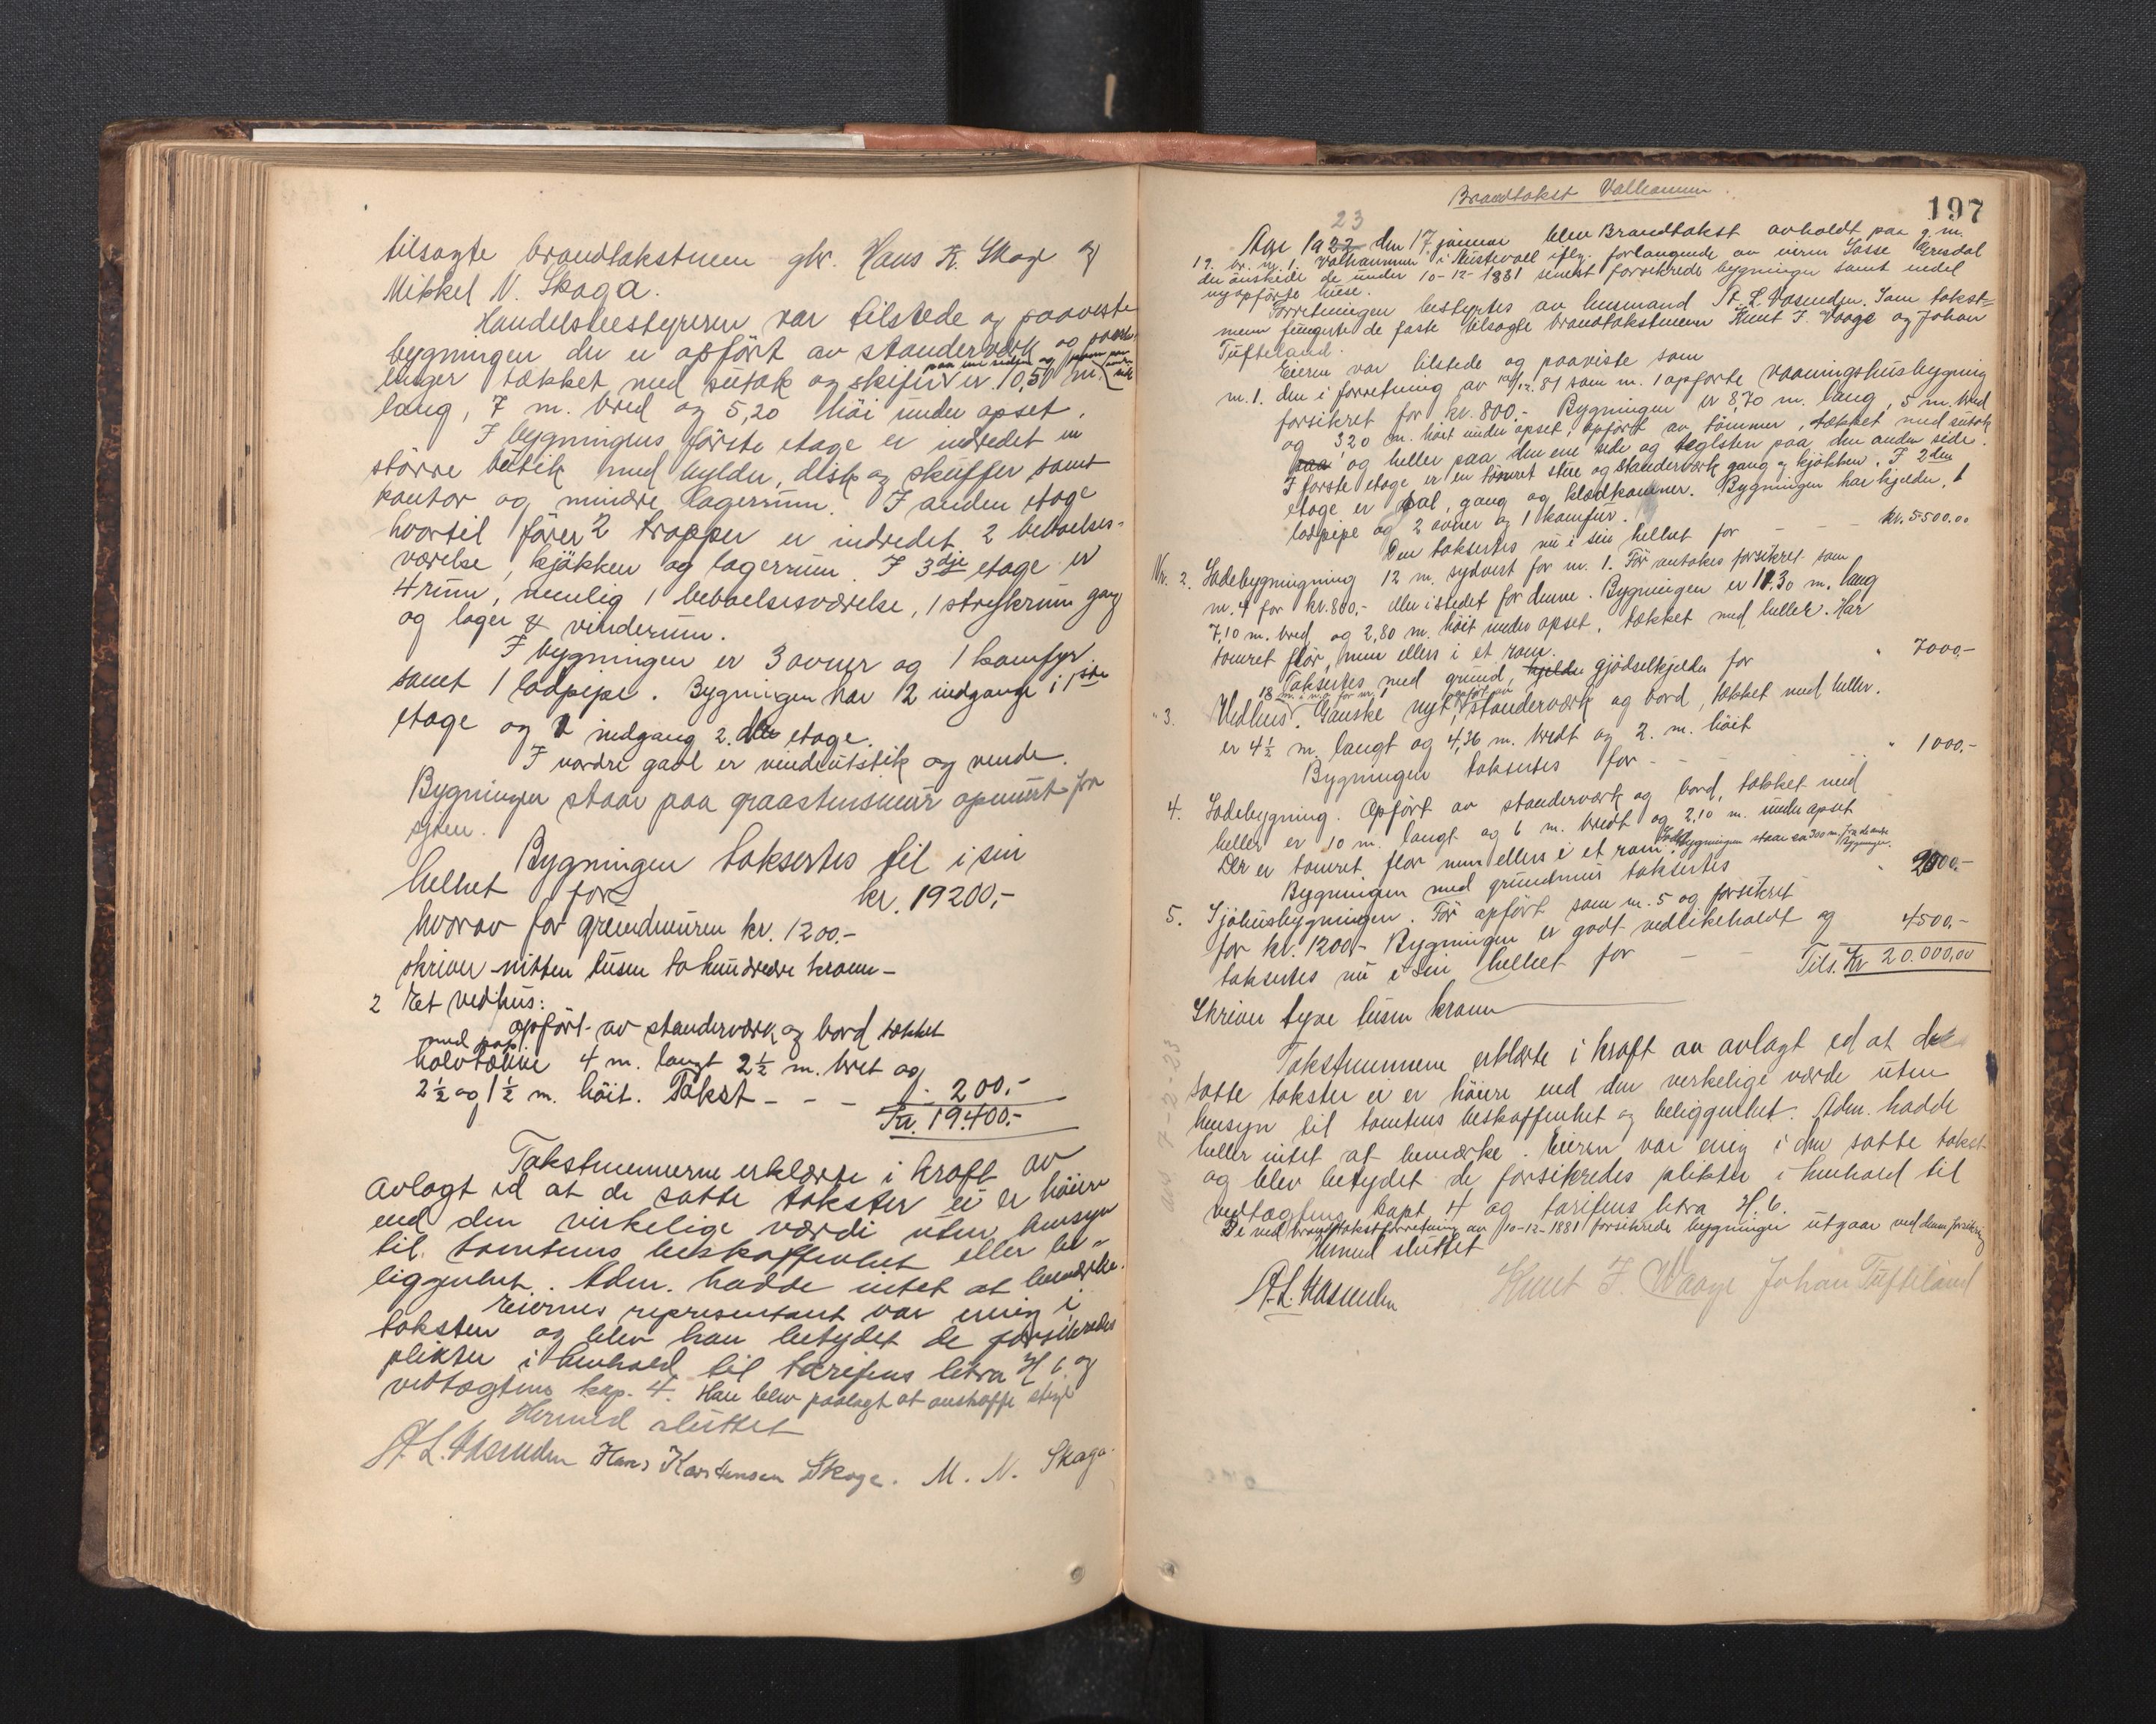 tilsagte brandtakstmenn gbr. Hans K. Skage og
Mikkel N. Skaga.
Handelsbestyreren var tilstede og paaviste
bygningen der er opført av standerverk og
tækket med sutak og skifer paa ene siden og er 10,50 m.
lang, 7 m. bred og 5,20 høi under opset.
I bygningens første etage er indredet en
større butik med hylder, disk og skuffer samt
kontor og mindre lagerrum. I anden etage
hvortil fører 2 trapper er indredet 2 beboelses-
værelse, kjøkken og lagerrum. I 3dje etage er
4 rum, nemlig 1 beboelsesværelse, 1 strykrum gang
og lager & vinderum.
I bygningen er 3 ovner og 1 komfyr
samt 1 lodpipe. Bygningen har 2 indgange i 1ste
etage og 1 indgang 2. den etage.
I nordre gavl er vindeutstik og vinde.
Bygningen staar paa graastensmur opmurt fra
sjøen.
Bygningen taksertes til i sin
helhet for kr. 19200,-
hvorav for grundmuren kr. 1200.-
skriver nitten tusen tohundrede kroner -
2 Et vedhus:
opført av standerværk og bord tækket
med pap.
halvtække 4 m. langt 2½ m. bret og
2½ og 1½ m. høit. Takst - - - 200.-
Kr. 19.400.-
Takstmennerne erklærte i kraft av
avlagt ed at de satte takster ei er høiere
end den virkelige værdi uten hensyn
til tomtens beskaffenhet eller be-
liggenhet. Adm. hadde intet at bemærke.
Eiernes representant var enig i
taksten og blev han betydet de forsikredes
plikter i henhold til tarifens litra H 6 og
vedtægtens kap. 4. Han blev paalagt at anskaffe stige
Hermed sluttet
A. L. Vasenden Hans Karstensen Skage. M. N. Skaga.
Brandtakst Valhammer.
197
23
Aar 1922 den 17 januar blev Brandtakst avholdt paa g.nr.
19. br. nr. 1. Valhammer i Austevoll iflg. forlangende av eieren Lasse
der ønskede de under 10-12-1881 senest forsikrede bygninger samt endel
nyopførte huse.
Forretningen bestyrtes av lensmand A. L. Vasenden. Som takst-
menn fungerte de faste tilsagte brandtakstmenn Knut J. Vaage og Johan
Tufteland.
Eieren var tilstede og paaviste som
nr. 1. den i forretning av 10/12.81 som nr. 1 opførte vaaningshusbygning
forsikret for kr. 800.- Bygningen er 8,70 m. lang, 5 m. bred
og 3,20 m. høit under opset, opført av tømmer, tækket med sutak
paa og heller paa den ene side og teglsten paa den anden side.
I første etage er en tømret stue og standerværk gang og kjøkken. I 2den
etage er sal, gang og klædkammer. Bygningen har kjelder, 1
lodpipe og 2 ovner og 1 komfur.
Den taksertes nu i sin helhet for - - - kr. 5500.00
Nr. 2. Ladebygningning 12 m. sydvest for nr. 1. Før antakes forsikret som
nr. 4 for kr. 800,- eller istedet for denne. Bygningen er 11.30 m. lang
7,10 m. bred og 2,80 m. høit under opset, tækket med heller. Har
tømret flor, men ellers i et rom.
Taksertes med grund, kjelder gjødselkjelder for " 7000.-
" 3. Vedhus. Ganske nyt, opført av standerværk og bord, tækket med heller.
er 4½ m. langt og 4,36 m. bredt og 2. m. høit
Bygningen taksertes for - - - " 1000.-
4. Ladebygning. Opført av standerværk og bord, tækket med
heller er 10 m. langt og 6 m. bredt og 2,10 m. under opset
Der er tømret flor men ellers i et rom. Ladebygningen staar ca 300 m. fra de andre
bygninger.
Bygningen med grundmur taksertes " 2000.-
5. Sjøhusbygningen. Før opført som nr. 5 og forsikret
for kr. 1200.- Bygningen er godt vedlikeholdt og
taksertes nu i sin helhet for - - 4500,-
Tils. Kr 20.000,00
Skriver tyve tusen kroner
Takstmennene erklærte i kraft av avlagt ed at de
satte takster ei er høiere end den verkelige værde uten
hensyn til tomtens beskaffenhet og beliggenhet. Adm. hadde
heller intet at bemærke. Eieren var enig i den satte takst
og blev betydet de forsikredes plikter i henhold til
vedtægtens kapt. 4 og tarifens litra H. 6.
De ved brandtakstforretning av 10-12-1881 forsikrede bygninger utgaar ved denne forsikring
Hermed sluttet
A. L. Vasenden Knut J. Waage Johan Tufteland
7-2-23